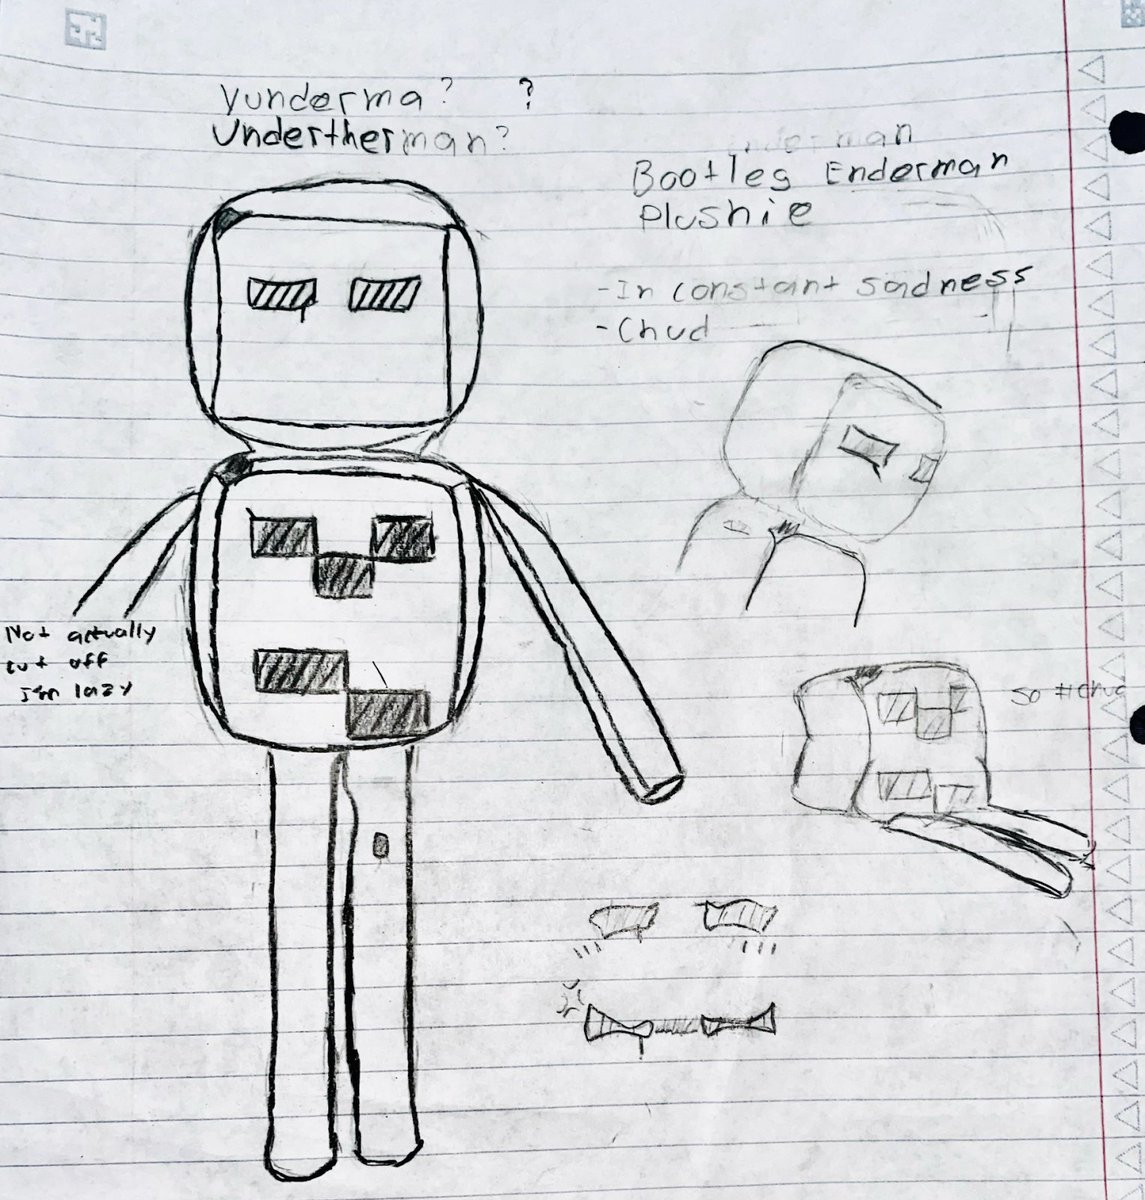 Yunderma? ?
Undertherman?
enderman
Bootleg Enderman
Plushie
-In constant sadness
-Chud
Not actually
cut off
I'm lazy
so #chud